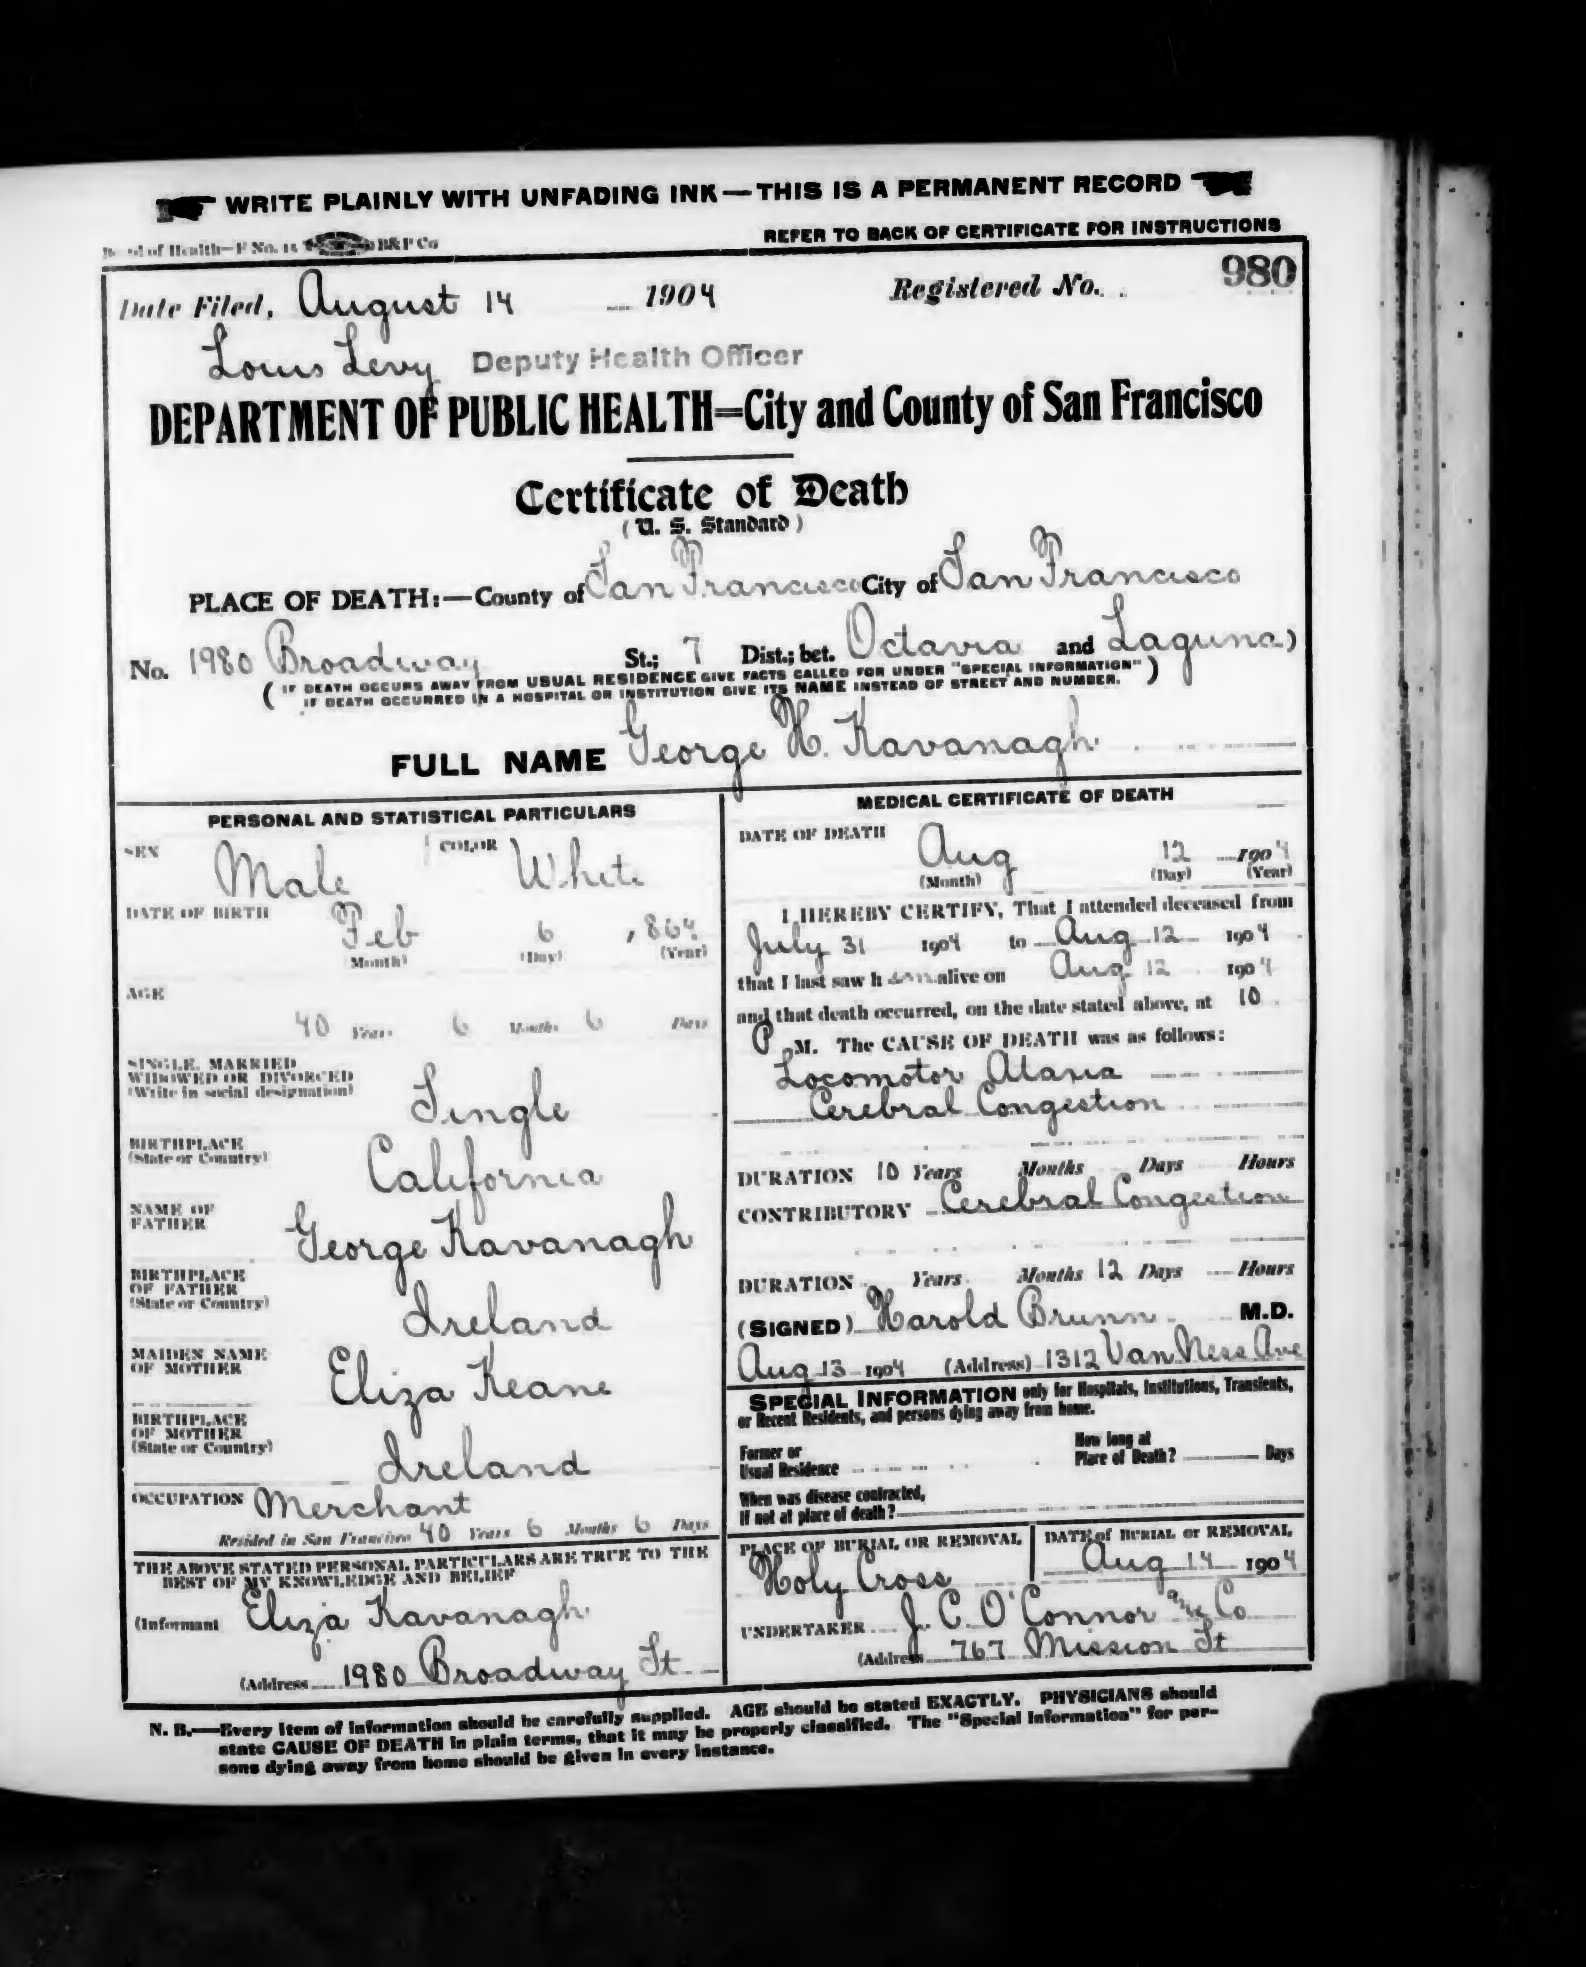 WRITE PLAINLY WITH UNFADING INK—THIS IS A PERMANENT RECORD
Board of Health—F No. 15 B&P Co
REFER TO BACK OF CERTIFICATE FOR INSTRUCTIONS
Date Filed, August 14 1904 Registered No. 980
Louis Levy Deputy Health Officer
DEPARTMENT OF PUBLIC HEALTH=City and County of San Francisco
Certificate of Death
(U. S. Standard)
PLACE OF DEATH:—County of San Francisco City of San Francisco
No. 1980 Broadway St.; 7 Dist.; bet. Octavia and Laguna)
( IF DEATH OCCURS AWAY FROM USUAL RESIDENCE GIVE FACTS CALLED FOR UNDER "SPECIAL INFORMATION" )
IF DEATH OCCURRED IN A HOSPITAL OR INSTITUTION GIVE ITS NAME INSTEAD OF STREET AND NUMBER.
FULL NAME George H. Kavanagh
PERSONAL AND STATISTICAL PARTICULARS
SEX Male COLOR White
DATE OF BIRTH Feb 6 , 864
(Month) (Day) (Year)
AGE
40 Years 6 Months 6 Days
SINGLE, MARRIED
WIDOWED OR DIVORCED
(Write in social designation) Single
BIRTHPLACE
(State or Country) California
NAME OF
FATHER George Kavanagh
BIRTHPLACE
OF FATHER
(State or Country) Ireland
MAIDEN NAME
OF MOTHER Eliza Keane
BIRTHPLACE
OF MOTHER
(State or Country) Ireland
OCCUPATION Merchant
Resided in San Francisco 40 Years 6 Months 6 Days
THE ABOVE STATED PERSONAL PARTICULARS ARE TRUE TO THE
BEST OF MY KNOWLEDGE AND BELIEF
(Informant Eliza Kavanagh
(Address 1980 Broadway St
MEDICAL CERTIFICATE OF DEATH
DATE OF DEATH Aug 12 1904
(Month) (Day) (Year)
I HEREBY CERTIFY, That I attended deceased from
July 31 1904 to Aug 12 1904
that I last saw h im alive on Aug 12 1904
and that death occurred, on the date stated above, at 10
P M. The CAUSE OF DEATH was as follows:
Locomotor Ataxia
Cerebral Congestion
DURATION 10 Years Months Days Hours
CONTRIBUTORY Cerebral Congestion
DURATION Years Months 12 Days Hours
(SIGNED) Harold Brunn M.D.
Aug 13 1904 (Address) 1312 Van Ness Ave
SPECIAL INFORMATION only for Hospitals, Institutions, Transients,
or Recent Residents, and persons dying away from home.
Former or
Usual Residence
How long at
Place of Death? Days
When was disease contracted,
If not at place of death?
PLACE OF BURIAL OR REMOVAL Holy Cross
DATE of BURIAL or REMOVAL Aug 14 1904
UNDERTAKER J. C. O'Connor and Co
(Address 767 Mission St
N. B.—Every item of information should be carefully supplied. AGE should be stated EXACTLY. PHYSICIANS should
state CAUSE OF DEATH in plain terms, that it may be properly classified. The "Special Information" for per-
sons dying away from home should be given in every instance.